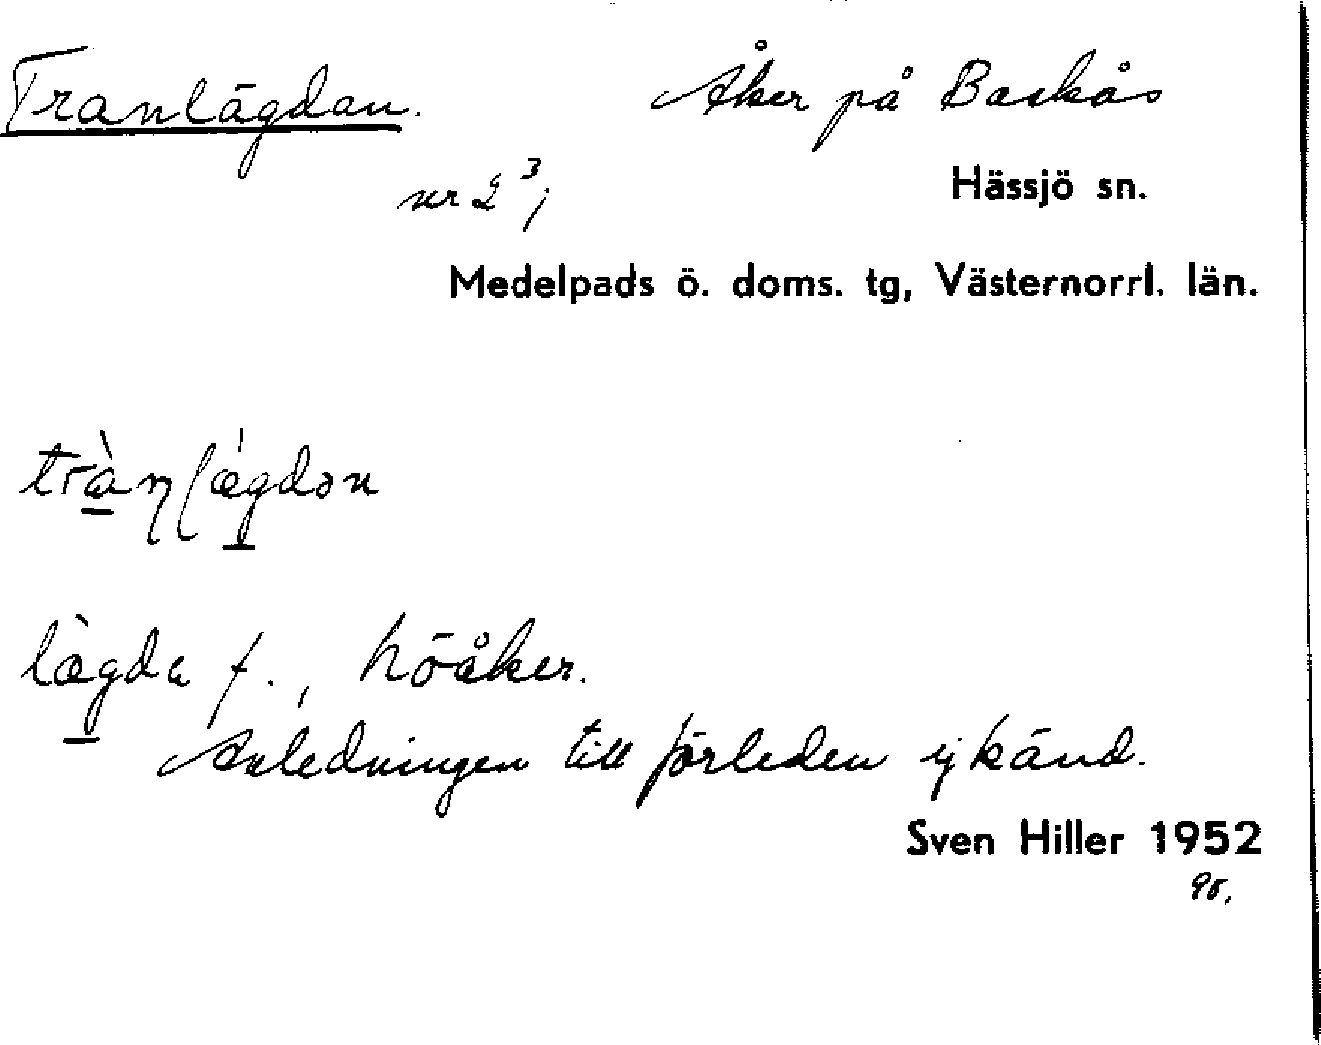 Tranlägdan. Åker på Baskås
nr 2³,
Hässjö sn.
Medelpads ö. doms. tg, Västernorrl. län.
lägda f., höåker.
Anledningen till förleden ej känd.
Sven Hiller 1952